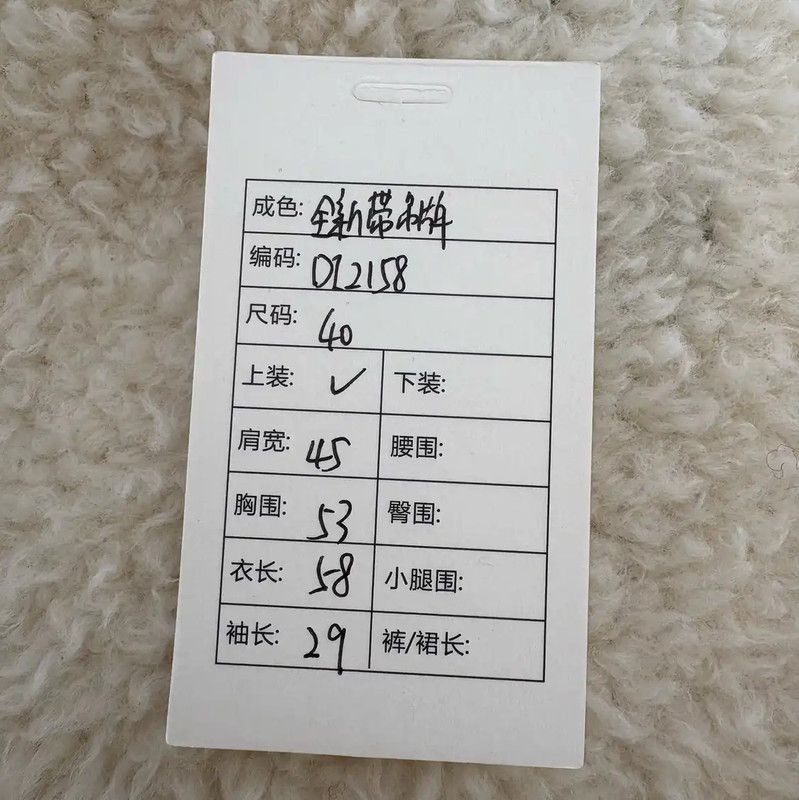 成色: 全新带吊牌
编码: D12158
尺码: 40
上装: ✓ 下装:
肩宽: 45 腰围:
胸围: 53 臀围:
衣长: 58 小腿围:
袖长: 29 裤/裙长: